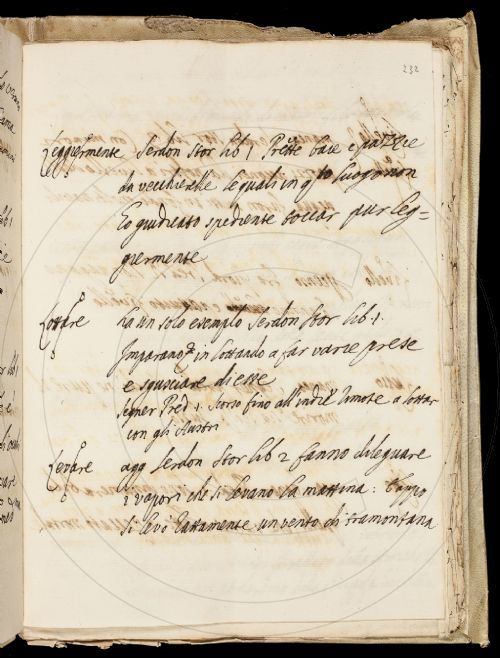 232
Leggiermente Serdon Stor lib 1 Prette baie e pazzie
da vecchierelle le quali in q.to luogo non
ho giudicato spediente toccar pur leg=
giermente
Lottare ha un solo esempio Serdon Stor lib. 1
Imparano in lottando a far varie prese
e sgusciare di esse
Segner Pred 1 scorso fino all'indie limote a lottar
con gli Austri
Levare agg Serdon Stor lib 2 fanno dileguare
i vapori che si levano la mattina:
si levò lattamente un vento di tramontana